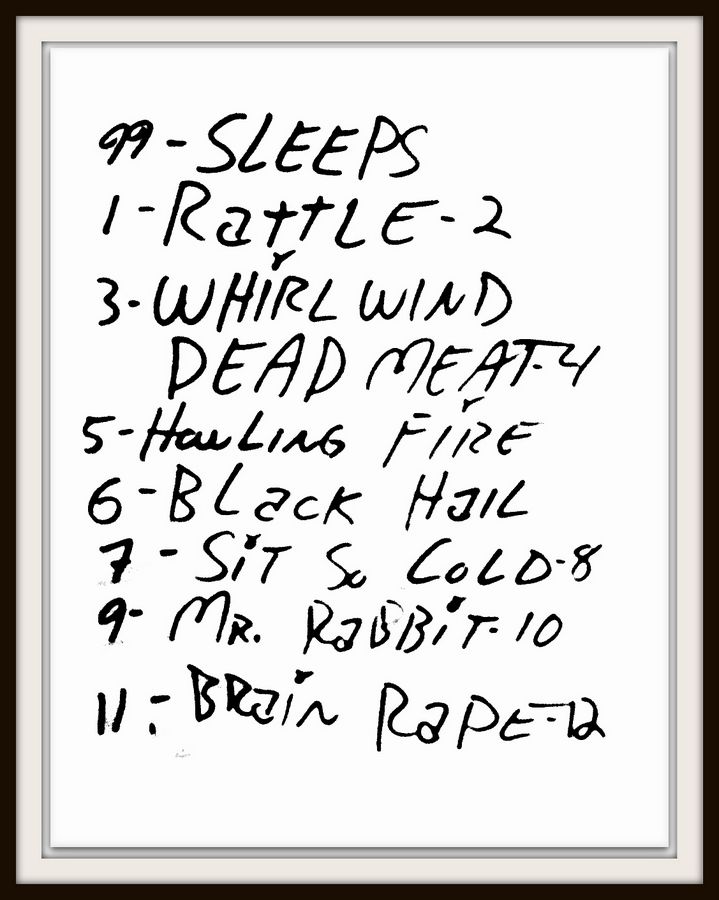 99 - SLEEPS
1 - RattLE - 2
3 - WHiRL WIND
DEAD MEAT - 4
5 - HowLING FiRE
6 - BLack HaIL
7 - SiT So CoLD - 8
9 - MR. RaBBiT - 10
11 - BRain RaPE - 12